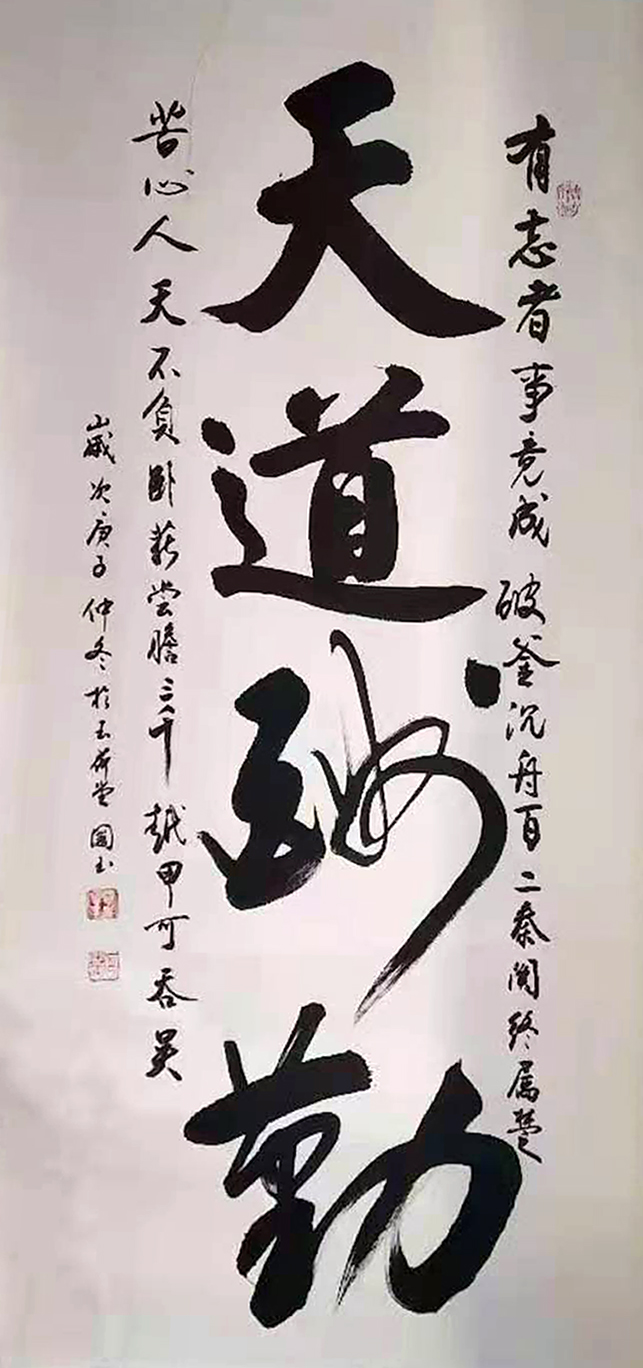 有志者事竟成破釜沉舟百二秦关终属楚
天道酬勤
苦心人天不负卧薪尝胆三千越甲可吞吴
岁次庚子仲冬于 堂国